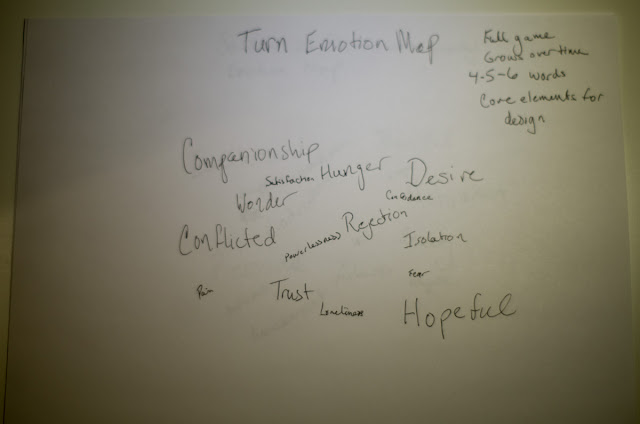 Turn Emotion Map
Full game
Grows over time
4-5-6 words
Core elements for
design
Companionship
Satisfaction Hunger
Desire
Wonder
Confidence
Conflicted
Powerlessness
Rejection
Isolation
Pain
Trust
Fear
Loneliness
Hopeful